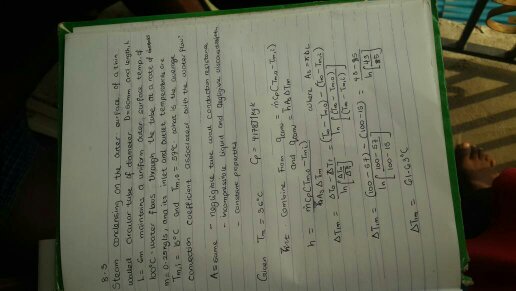 8.3
Steam condensing on the outer surface of a thin
walled circular tube of diameter D=50mm and length
L = 6m maintains a uniform outer surface temp of
100°C. water flows through the tube at a rate of
m = 0.25 kg/s, and its inlet and outlet temperatures are
Tm,i = 15°C and Tm,o = 57°C what is the average
convection coefficient associated with the water flow?
Assume - negligible tube wall conduction resistance
- incompressible liquid and negligible viscous
- constant properties
Given Tm = 36°C Cp = 4178 J/kg.k
combine from qconv = ṁCp(Tm,o - Tm,i)
and qconv = hAsΔTlm
h = ṁCp(Tm,o - Tm,i) / AsΔTlm where As = πDL
ΔTlm = ΔTo - ΔTi / ln[ΔTo/ΔTi] = (Ts - Tm,o) - (Ts - Tm,i) / ln[(Ts - Tm,o)/(Ts - Tm,i)]
ΔTlm = (100-57) - (100-15) / ln[100-57/100-15] = 43-85 / ln[43/85]
ΔTlm = 61.63°C